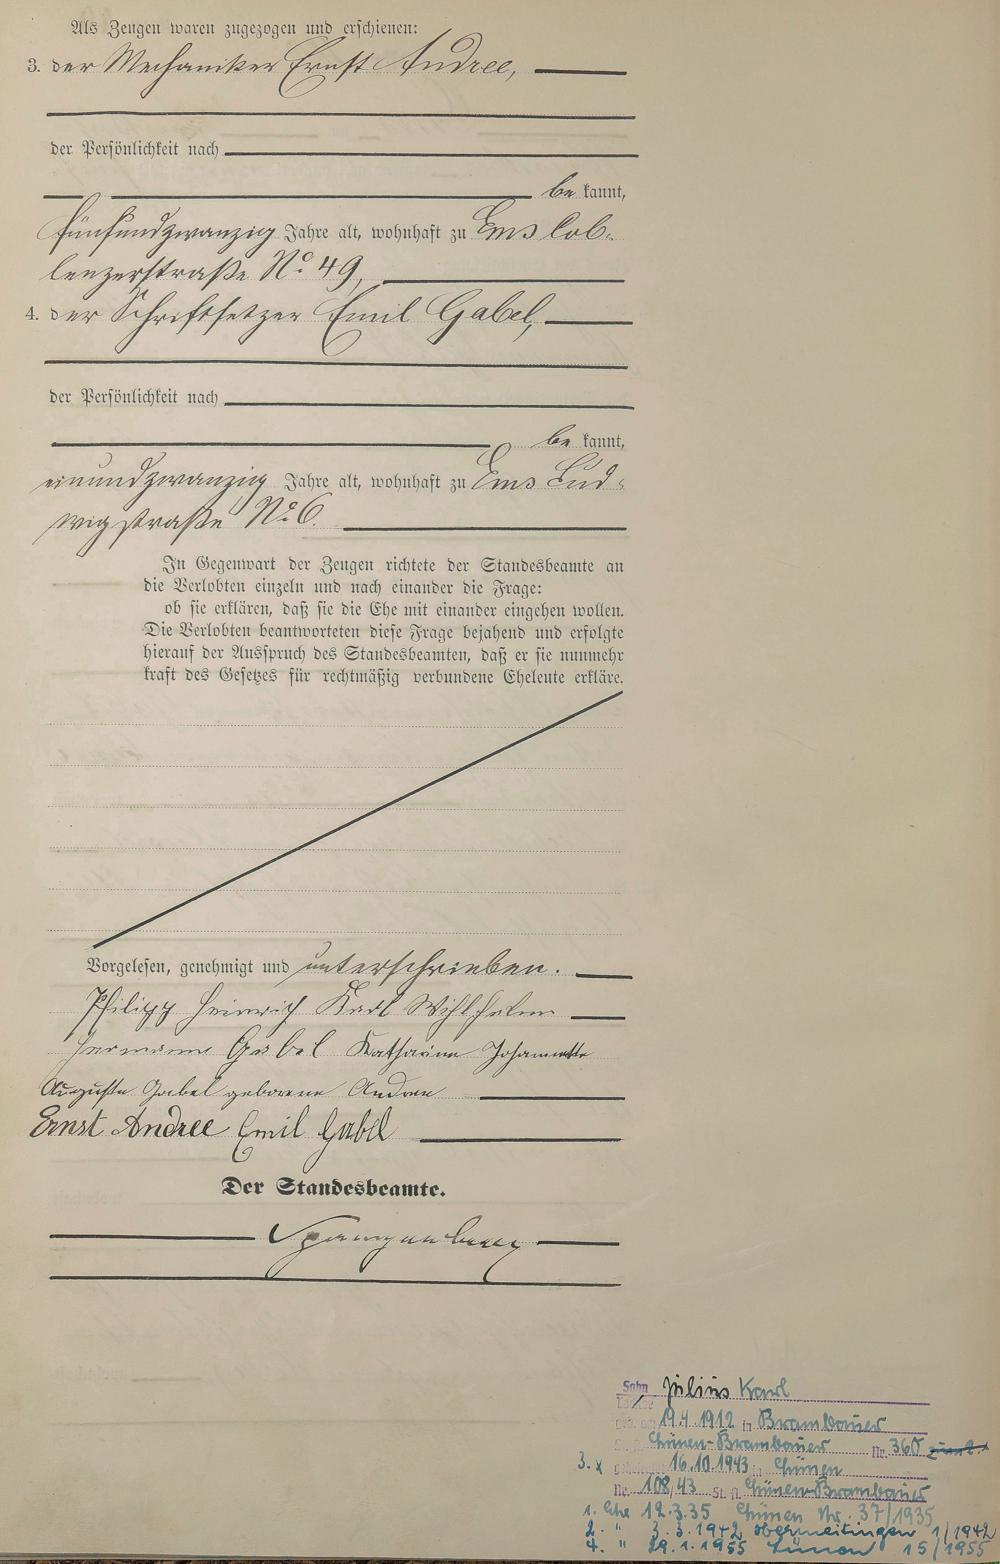 Als Zeugen waren zugezogen und erschienen:
3. der Mechaniker Ernst Andree,
der Persönlichkeit nach
bekannt,
fünfundzwanzig Jahre alt, wohnhaft zu Ems Cob-
lenzerstraße No 49,
4. der Schriftsetzer Emil Gabel,
der Persönlichkeit nach
bekannt,
einundzwanzig Jahre alt, wohnhaft zu Ems Lud-
wigstraße No 6.
In Gegenwart der Zeugen richtete der Standesbeamte an
die Verlobten einzeln und nach einander die Frage:
ob sie erklären, daß sie die Ehe mit einander eingehen wollen.
Die Verlobten beantworteten diese Frage bejahend und erfolgte
hierauf der Ausspruch des Standesbeamten, daß er sie nunmehr
kraft des Gesetzes für rechtmäßig verbundene Eheleute erkläre.
Vorgelesen, genehmigt und unterschrieben.
Philipp Heinrich Karl Wilhelm
Hermann Gabel Katharina Johannette
Auguste Gabel geborene Andree
Ernst Andree Emil Gabel
Der Standesbeamte.
Spangenberg
Sohn Julius Karl
geb. am 19.4.1912 in Brambauer
Lünen-Brambauer Nr. 360
3. x 16.10.1943 in Lünen
Nr. 108/43 St. A. Lünen-Brambauer
1. Ehe 12.3.35 Lünen Nr. 37/1935
2. " 3.3.1942 Obermeitingen 1/1942
4. " 29.1.1955 Lünen 15/1955